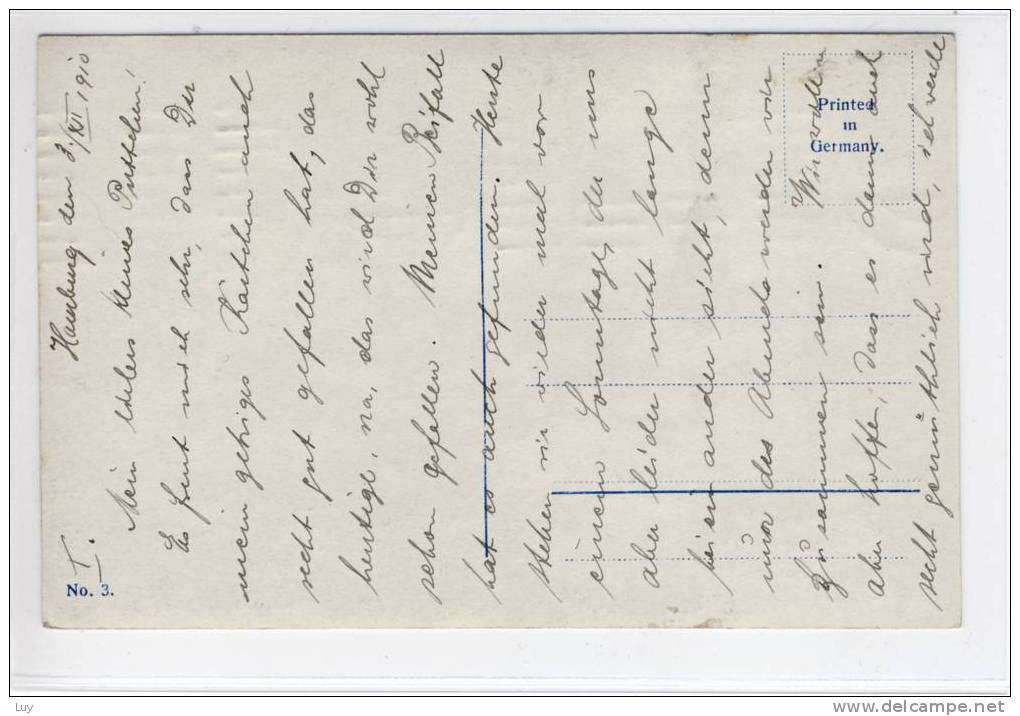 I.
Hamburg den 3/XII. 1910
Mein liebes kleines
Es freut mich sehr, dass Dir
mein gestriges Kärtchen auch
recht gut gefallen hat, das
heutige, na, das wird Dir wohl
schon gefallen. Meinen Beifall
hat es auch gefunden. Heute
stehen wir wieder mal vor
einem Sonntage, der uns
aber leider nicht lange
bei einander sieht, denn
nur des Abends werden wir
zusammen sein. Wir wollen
aber hoffen, dass es dann auch
recht gemüthlich wird, ich werde
No. 3.
Printed
in
Germany.
Luy
www.delcampe.net